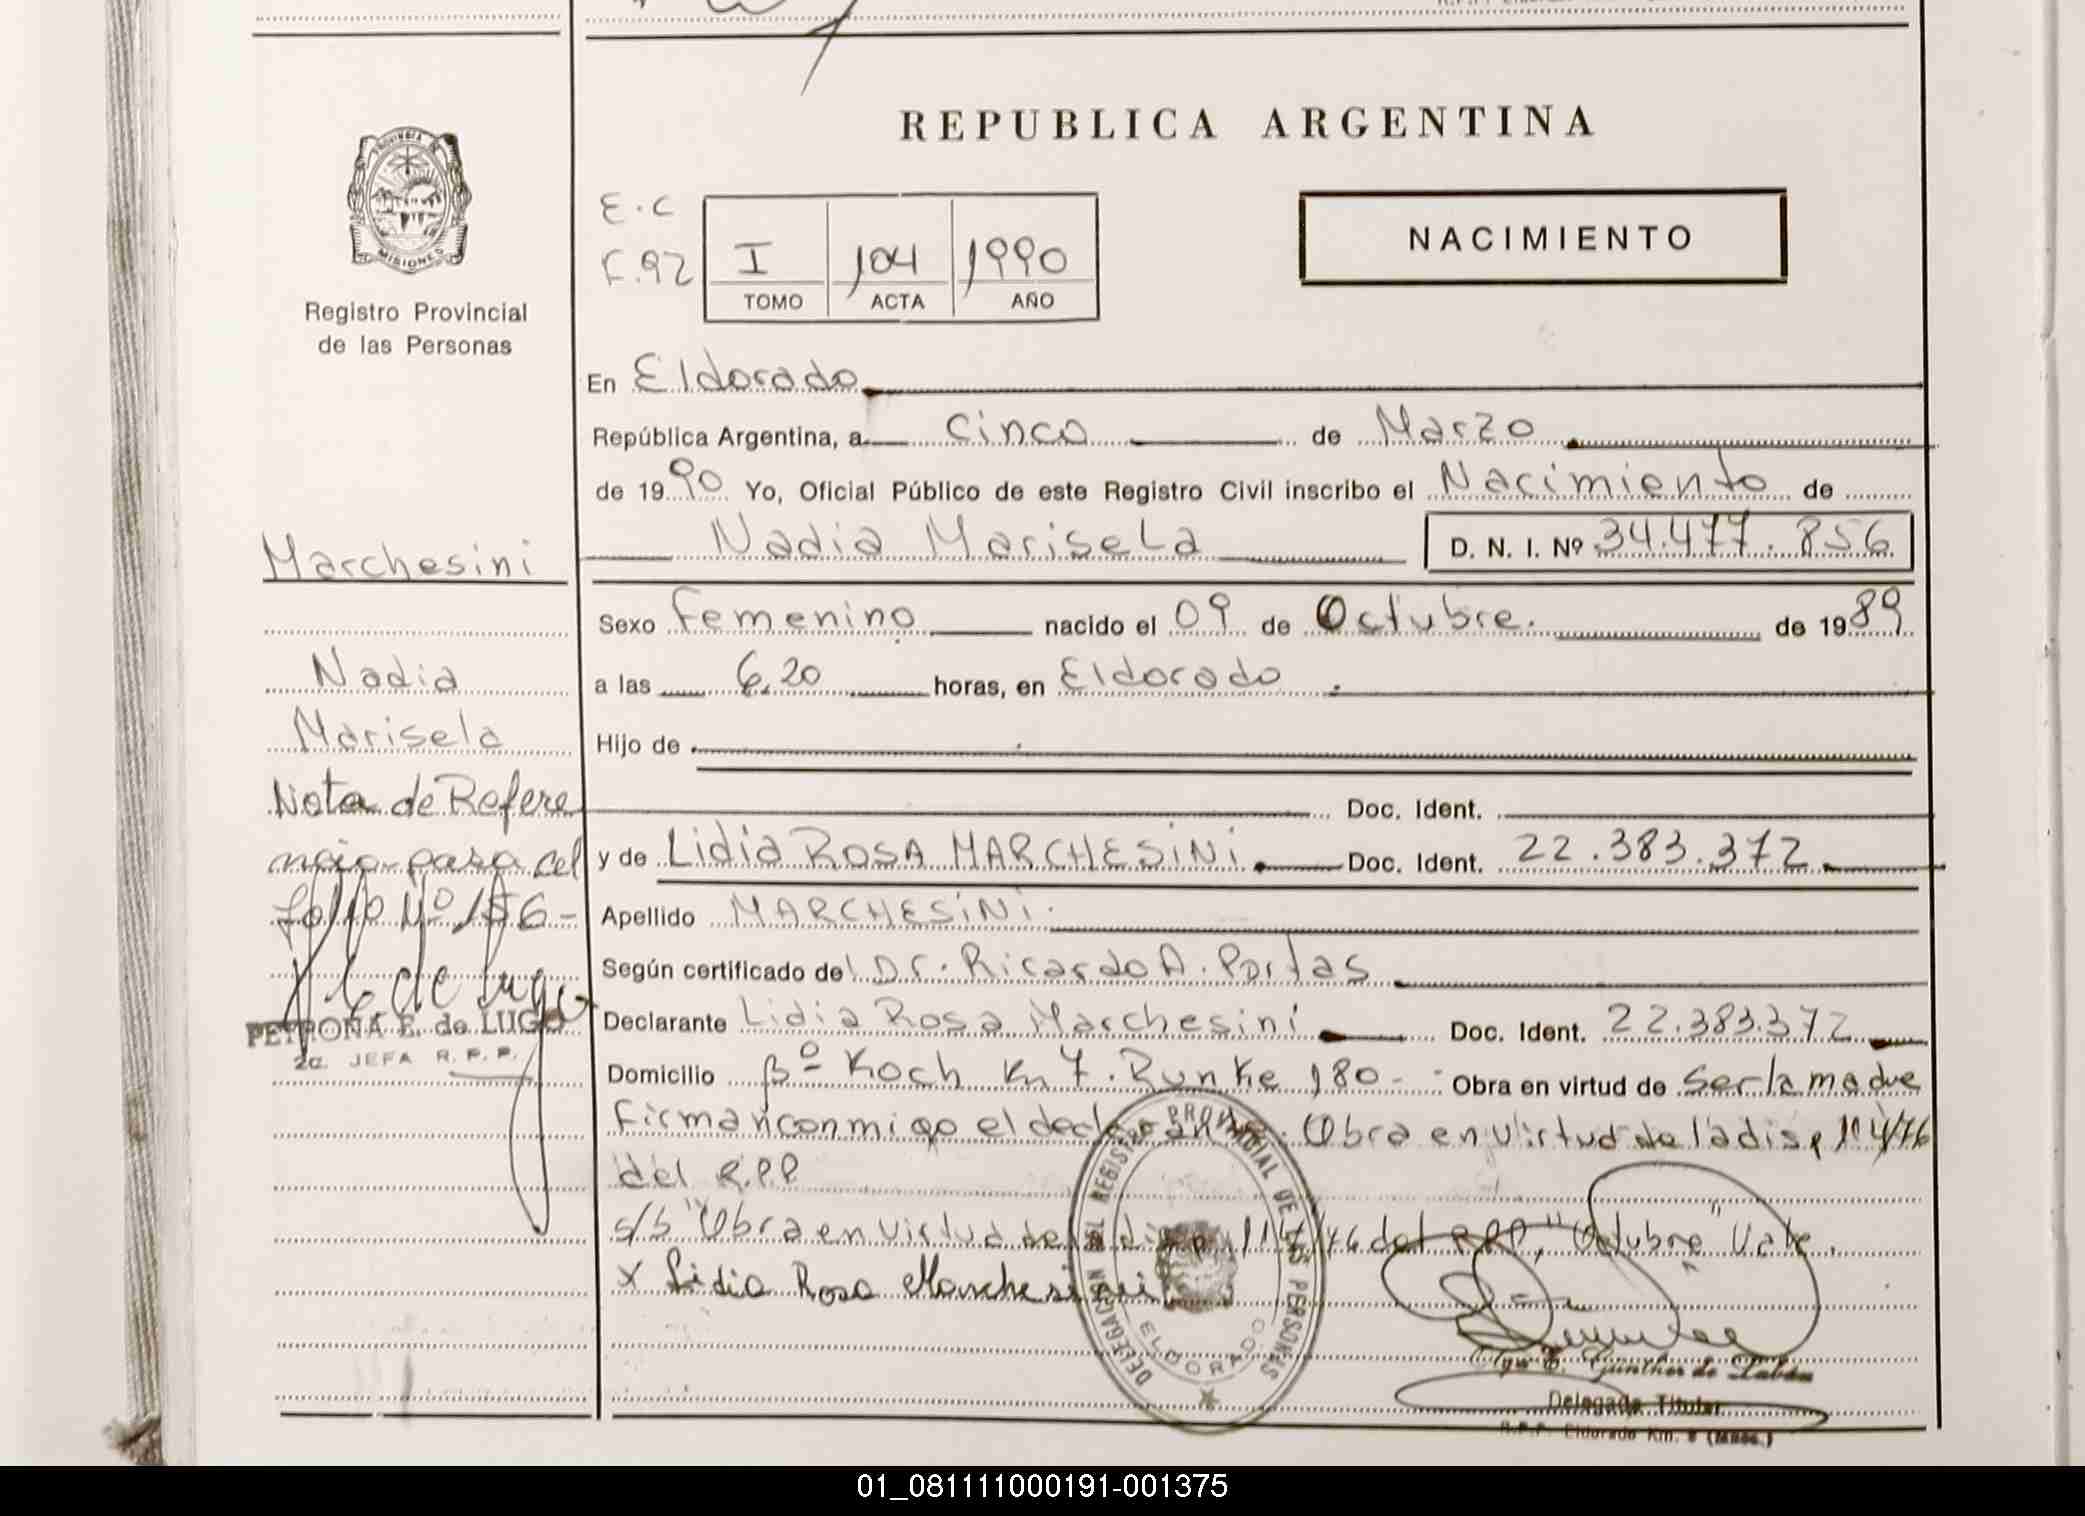 REPUBLICA ARGENTINA
PROVINCIA DE MISIONES
Registro Provincial
de las Personas
E.C
F.92
I 104 1990
TOMO ACTA AÑO
NACIMIENTO
En Eldorado
República Argentina, a cinco de Marzo
de 1990 Yo, Oficial Público de este Registro Civil inscribo el Nacimiento de
Nadia Marisela D. N. I. Nº 34.477.856
Sexo femenino nacido el 09 de Octubre. de 1989
a las 6,20 horas, en Eldorado
Hijo de
Doc. Ident.
y de Lidia ROSA MARCHESINI Doc. Ident. 22.383.372
Apellido MARCHESINI.
Según certificado del Dr. Ricardo A. Portas
Declarante Lidia Rosa Marchesini Doc. Ident. 22.383.372
Domicilio Bº Koch Km 7. Runke 180- Obra en virtud de ser la madre
firman conmigo el declarante. Obra en virtud de la disp 114/76
del R.P.P
s/b "Obra en virtud de la disp 114/76 del RPP," "Octubre" Vale.
x Lidia Rosa Marchesini
Marchesini
Nadia
Marisela
Nota de Refere
ncia para el
folio Nº 156-
PETRONA E. de LUGO
2a. JEFA R.P.P.
DELEGACION DEL REGISTRO PROVINCIAL DE LAS PERSONAS
ELDORADO
Günther de
Delegada Titular
R.P.P. Eldorado Km. 8 (Mnes.)
01_081111000191-001375